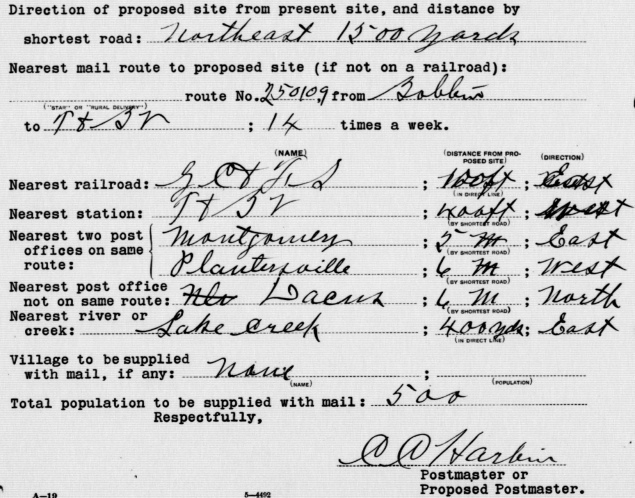 Direction of proposed site from present site, and distance by
shortest road: Northeast 1500 yards
Nearest mail route to proposed site (if not on a railroad):
route No. 250109 from Bobbin
("STAR" OR "RURAL DELIVERY")
to T & B V ; 14 times a week.
(NAME) (DISTANCE FROM PROPOSED SITE) (DIRECTION)
Nearest railroad: G C & ; 100ft ; East
(IN DIRECT LINE)
Nearest station: T & B V ; 400ft ; West
(BY SHORTEST ROAD)
Nearest two post offices on same route: Montgomery ; 5 m ; East
(BY SHORTEST ROAD)
Plantersville ; 6 m ; West
(BY SHORTEST ROAD)
Nearest post office not on same route: Dacus ; 6 m ; North
(BY SHORTEST ROAD)
Nearest river or creek: Lake Creek ; 400 yds ; East
(IN DIRECT LINE)
Village to be supplied
with mail, if any: None ;
(NAME) (POPULATION)
Total population to be supplied with mail: 500
Respectfully,
C A Harbin
Postmaster or
Proposed Postmaster.
A—19 5—4492